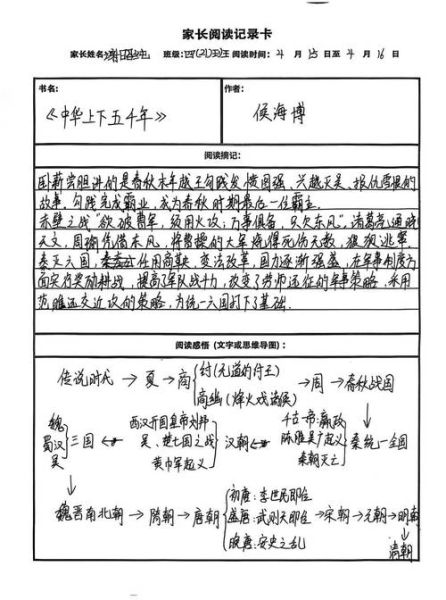 家长阅读记录卡
家长姓名: 班级:四(2)班 阅读时间:4月15日至4月16日
书名: 作者:
《中华上下五千年》 侯海博
阅读摘记:
卧薪尝胆讲的是春秋末年越王勾践发愤图强、兴越灭吴、报仇雪恨的
故事,勾践完成霸业,成为春秋时期最后一任霸主。
赤壁之战"欲破曹军,须用火攻;万事俱备,只欠东风",诸葛亮通晓
天文,周瑜凭借东风,将曹操的大军烧得死伤无数,狼狈逃窜。
秦灭六国,秦孝公任用商鞅,变法改革,国力逐渐强盛,在军事制度方
面实行奖励耕战,提高了军队战斗力,改变了劳师远征的军事策略,采用
范雎远交近攻的策略,为统一六国打下了基础.
阅读感悟(文字或思维导图):
传说时代→夏→商 纣(无道的纣王) →周→春秋战国
(烽火戏诸侯)
秦统一全国
千古一帝:嬴政
陈胜吴广起义
秦朝灭亡
汉朝
西汉开国皇帝刘邦
吴、楚七国之战
黄巾军起义
三国
魏
蜀汉
吴
魏晋南北朝→隋朝→唐朝
初唐:李世民即位
盛唐:武则天即位
晚唐:安史之乱
→宋朝→元朝→明朝
清朝